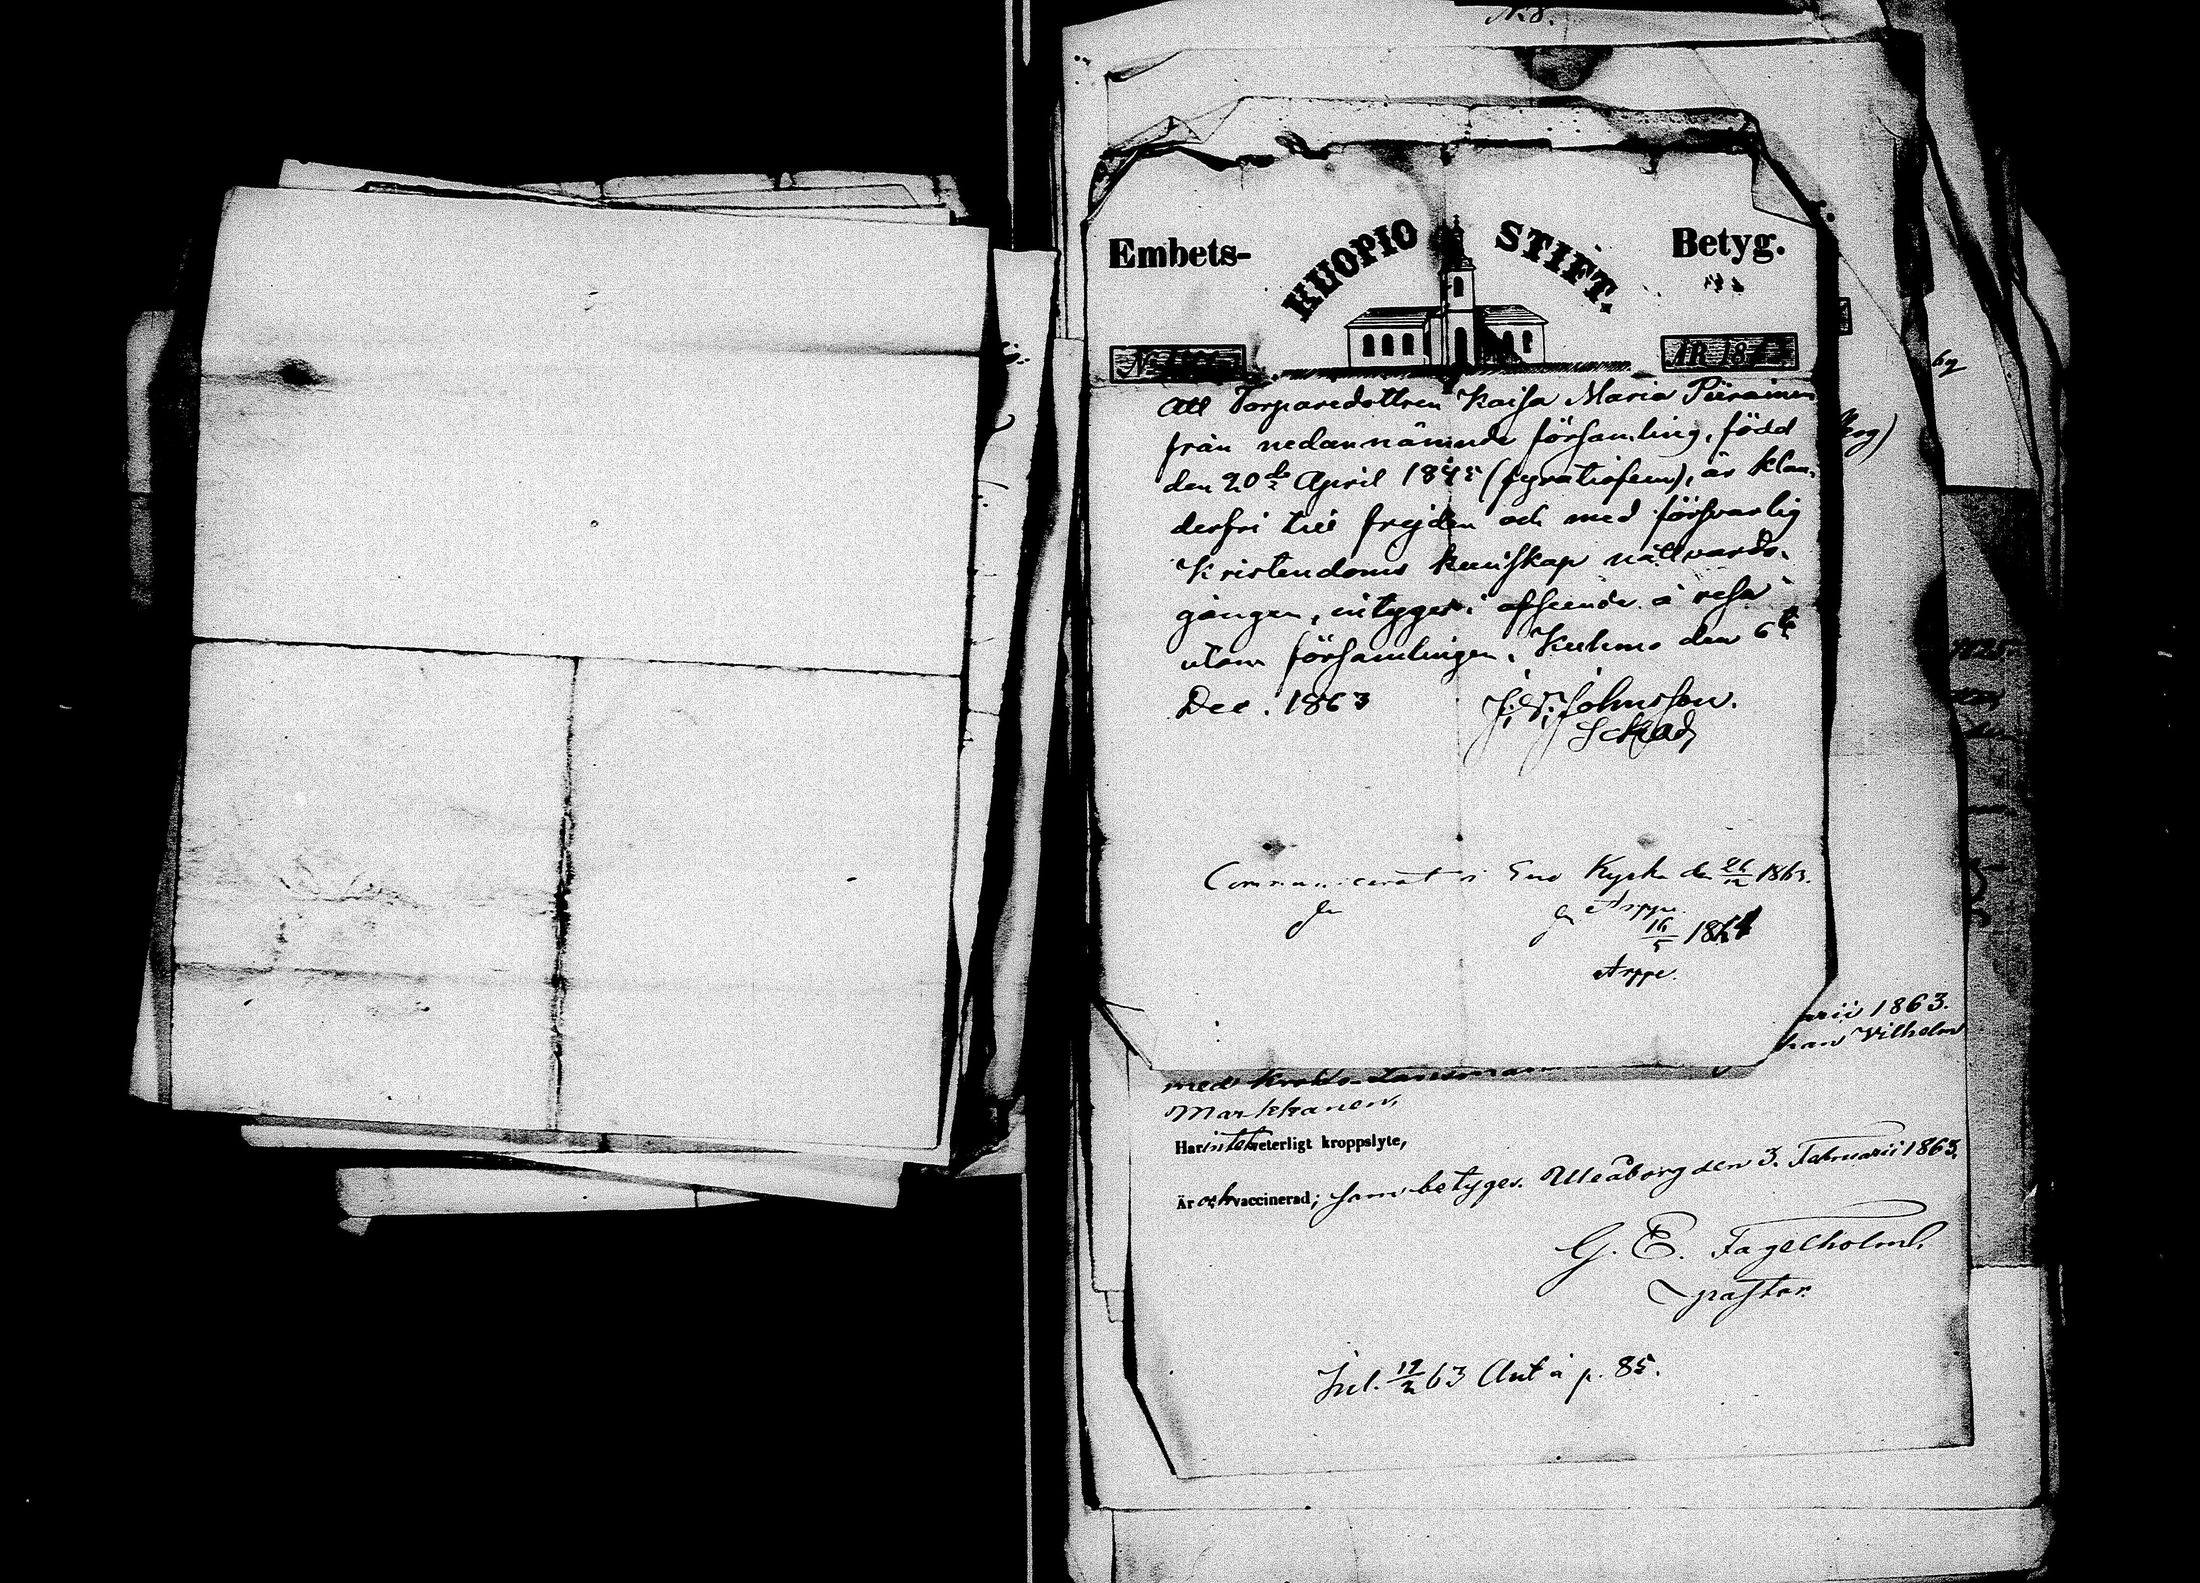 Embets- KUOPIO STIFT. Betyg.
No
ÅR 186
Att Torparedottren Kaisa Maria Piirainen
från nedannämnde församling, född
den 20de April 1845 (fyratiofem), är klan-
derfri till frejden och med försvarlig
Kristendoms kunskap nattvards-
gången, intygges i afseende å resa
utom församlingen. Kuhmo den 6te
Dec. 1863 Johnsson.
Communicerat i Eno Kyrka den 26/12 1863.
Arppe.
16/5 1864
Arppe.
arii 1863.
han Vilhelm
med Krono Länsman
Markkanen,
Har intet veterligt kroppslyte,
Är och vaccinerad; som betyges. Uleåborg den 3. Februarii 1863.
G. E. Fagelholm.
pastor.
Inl. 12/2 63 Ant å p. 85.